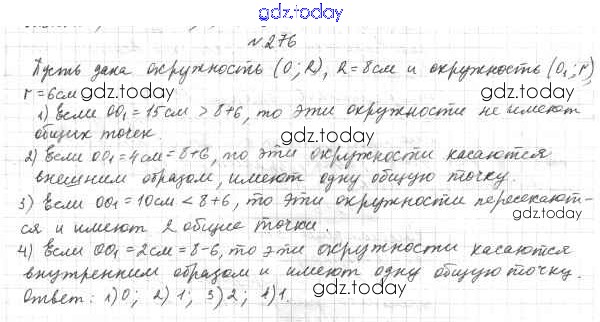 gdz.today
№ 276
Пусть дана окружность (O; R), R = 8см и окружность (O₁; r)
r = 6см gdz.today
1) Если OO₁ = 15см > 8+6, то эти окружности не имеют
общих точек. gdz.today
2) Если OO₁ = 4см = 8+6, то эти окружности касаются
внешним образом, имеют одну общую точку.
3) Если OO₁ = 10см < 8+6, то эти окружности пересекают-
ся и имеют 2 общие точки. gdz.today gdz.today
4) Если OO₁ = 2см = 8-6, то эти окружности касаются
внутренним образом и имеют одну общую точку.
Ответ: 1) 0; 2) 1; 3) 2; 4) 1. gdz.today